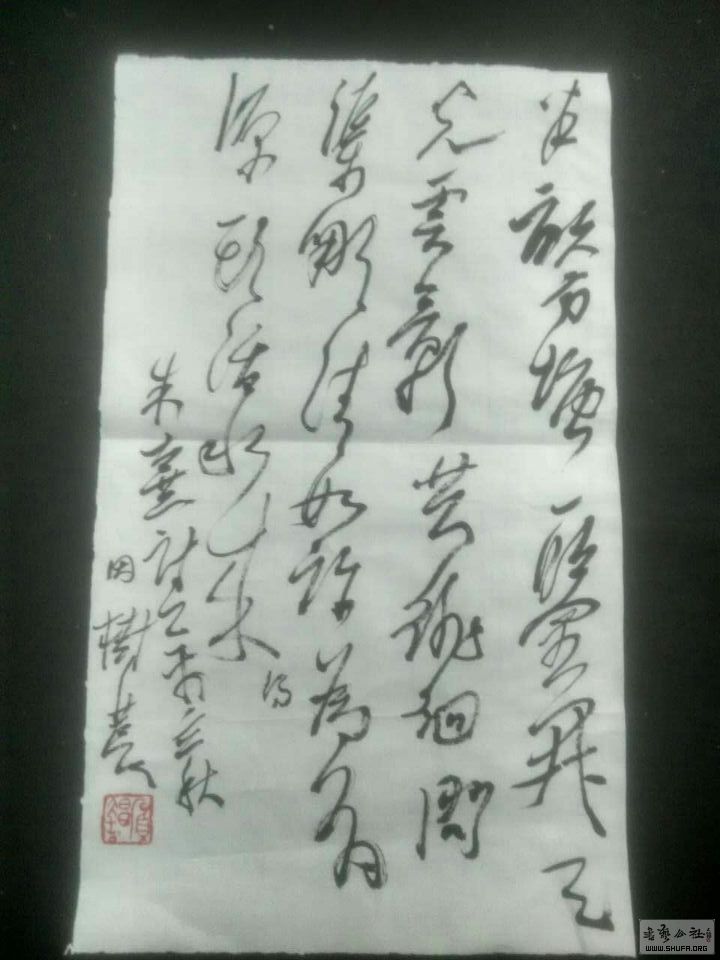 半畝方塘一鑒開天
光雲影共徘徊問
渠那清如許為有
源頭活水來 得
朱熹詩乙未立秋
田樹萇
書藝公社
WWW.SHUFA.ORG